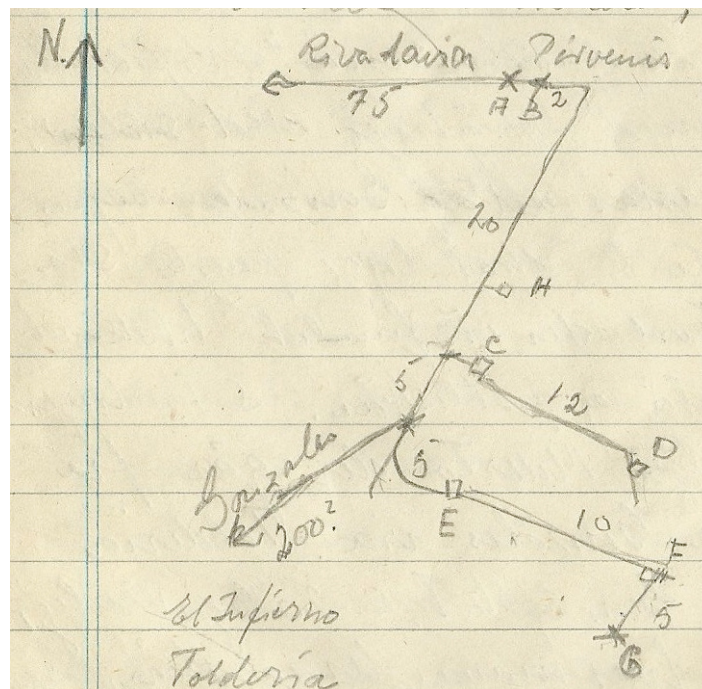 N.
Rivadavia Porvenir
75
A B 2
20
H
C
5
12
D
5
Gonzales
200?
E
10
F
5
G
El Infierno
Toldería